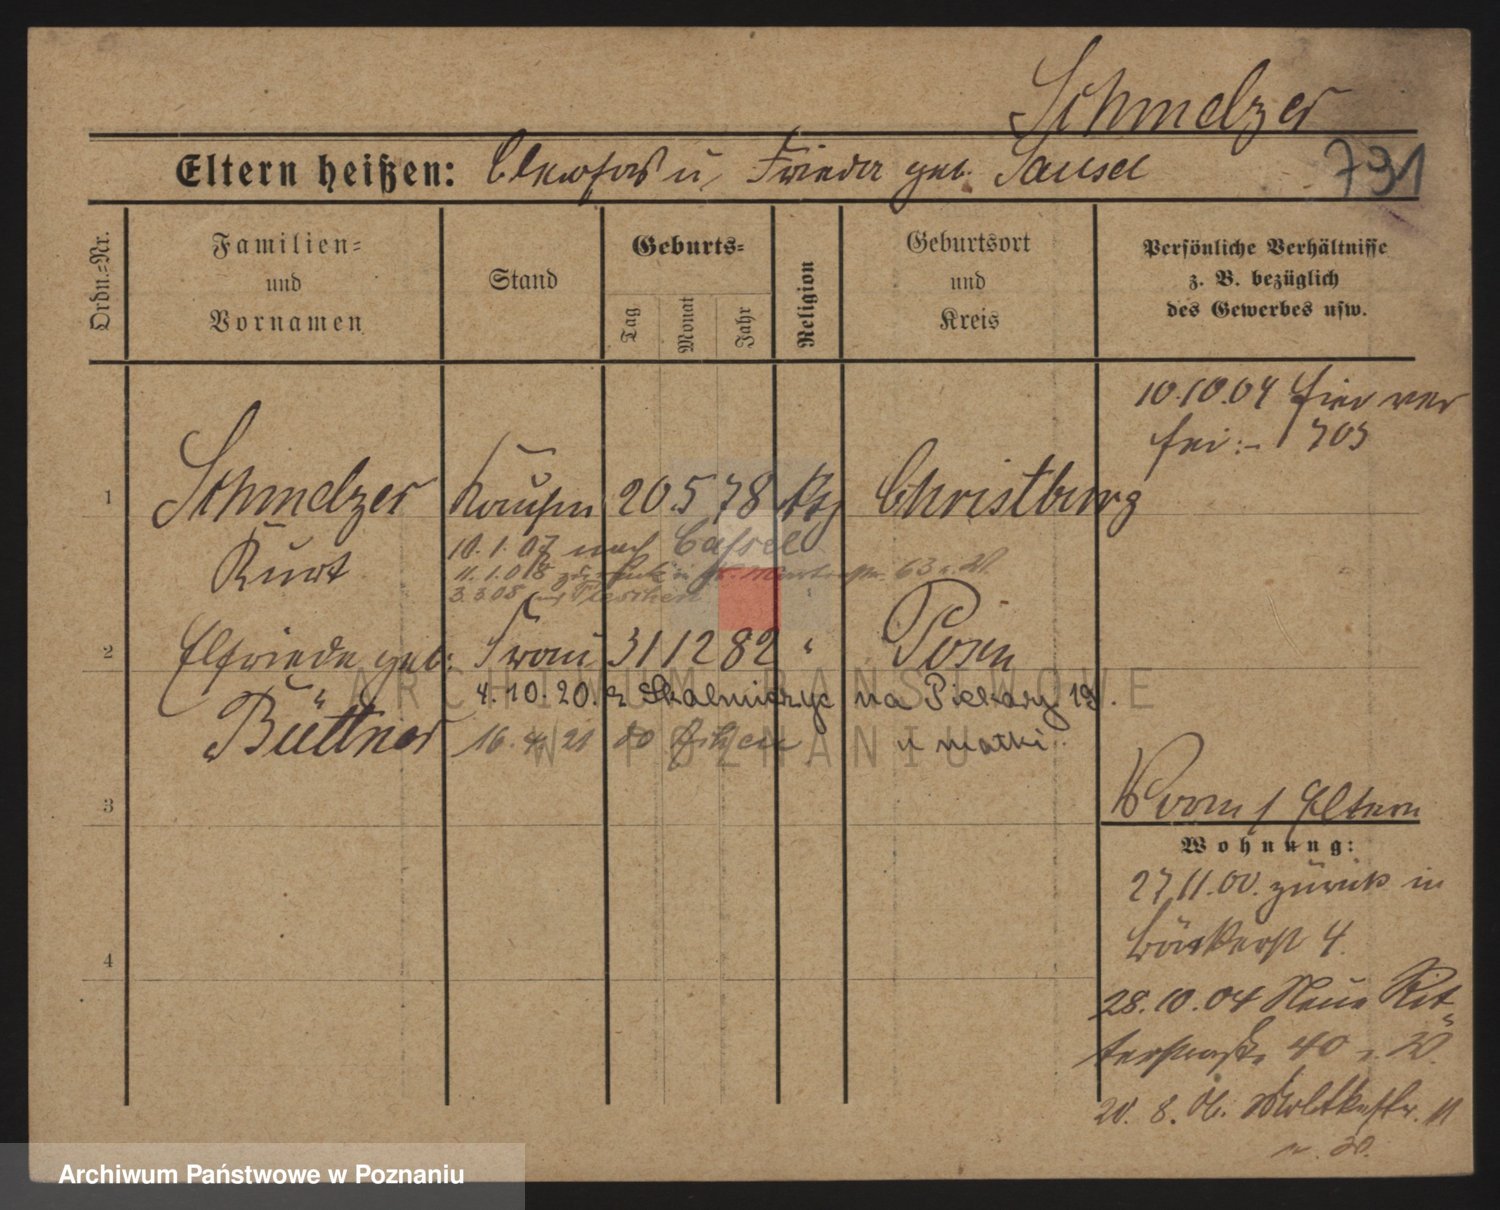 Schmelzer
Eltern heißen: u. Frieda geb.
791
Ordn.-Nr.
Familien-
und
Vornamen
Stand
Geburts-
Tag
Monat
Jahr
Religion
Geburtsort
und
Kreis
Persönliche Verhältnisse
z. B. bezüglich
des Gewerbes usw.
10.10.04 hier ver
hei:- 1703
1 Schmelzer Kaufm 20 5 78 Christburg
Kurt
10. 1. 07 nach Cassel
11. 1. 08 zurück 63
3. 3. 08 Pleschen
2 Elfriede geb. Frau 31 12 82 " Posen
4. 10. 20. z Skalmierzyc na Piekary 19.
Büttner
16. 4. 21 do
u matki.
3
4
Vorm / Eltern
Wohnung:
27.11.00. zurück in
Bäckerst 4.
28. 10. 04 Neue Rit-
terstraße 40
20. 8. 06. Moltkestr. 11
ARCHIWUM PAŃSTWOWE
W POZNANIU
Archiwum Państwowe w Poznaniu